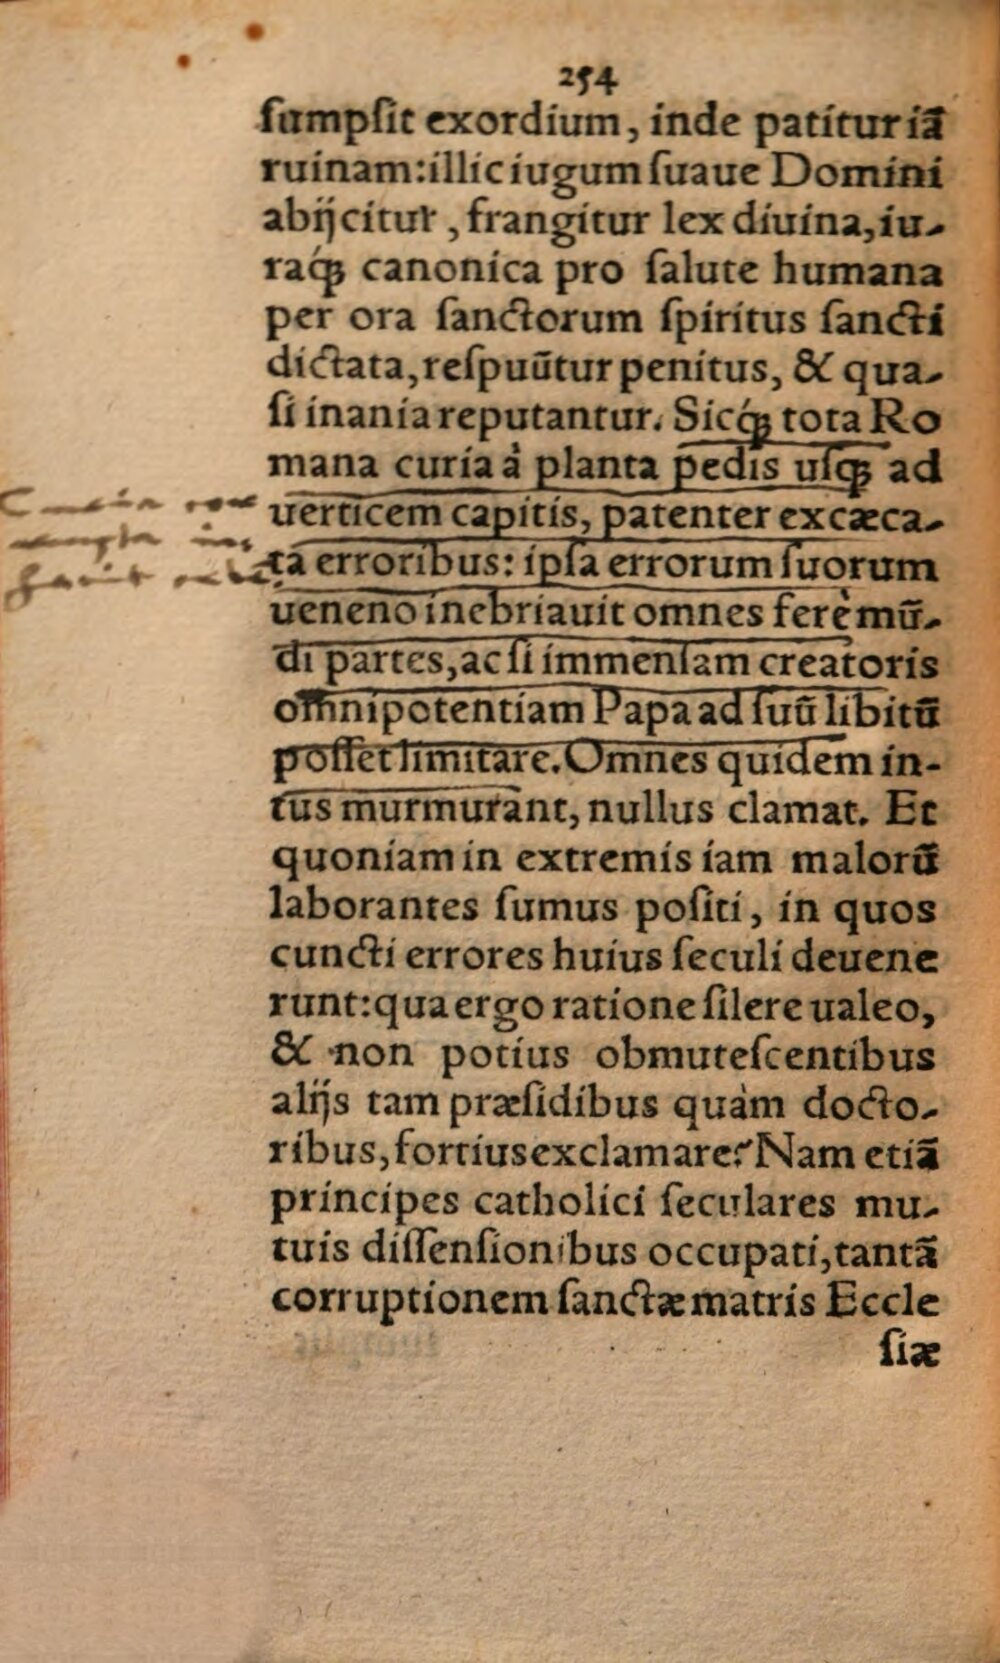 254
sumpsit exordium, inde patitur iã
ruinam: illic iugum suaue Domini
abijcitur, frangitur lex diuina, iu-
raq́; canonica pro salute humana
per ora sanctorum spiritus sancti
dictata, respuũtur penitus, & qua-
si inania reputantur. Sicq́; tota Ro
mana curia à planta pedis usq; ad
uerticem capitis, patenter excæca-
ta erroribus: ipsa errorum suorum
ueneno inebriauit omnes ferè mũ-
di partes, ac si immensam creatoris
omnipotentiam Papa ad suũ libitũ
posset limitare. Omnes quidem in-
tus murmurant, nullus clamat. Et
quoniam in extremis iam malorũ
laborantes sumus positi, in quos
cuncti errores huius seculi deuene
runt: qua ergo ratione silere ualeo,
& non potius obmutescentibus
alijs tam præsidibus quàm docto-
ribus, fortius exclamare? Nam etiã
principes catholici seculares mu-
tuis dissensionibus occupati, tantã
corruptionem sanctæ matris Eccle
siæ